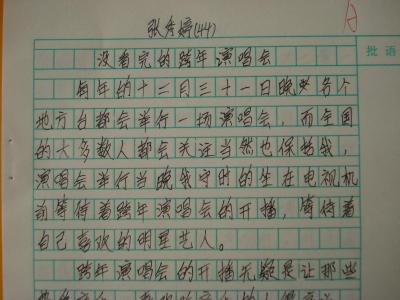 张秀婷(44)
A
批语
没看完的跨年演唱会
每年的十二月三十一日晚必各个
地方台都会举行一场演唱会，而全国
的大多数人都会关注当然也保括我，
演唱会举行当晚我守时的坐在电视机
前等待着跨年演唱会的开播，等待着
自己喜欢的明星艺人。
跨年演唱会的开播无疑是让那些